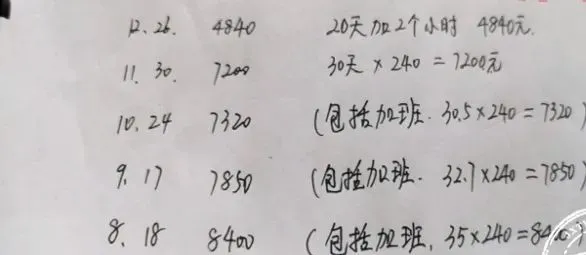 12.26. 4840 20天加2个小时 4840元.
11.30. 7200 30天×240=7200元
10.24 7320 (包括加班. 30.5×240=7320)
9.17 7850 (包括加班. 32.7×240=7850)
8.18 8400 (包括加班, 35×240=8400)